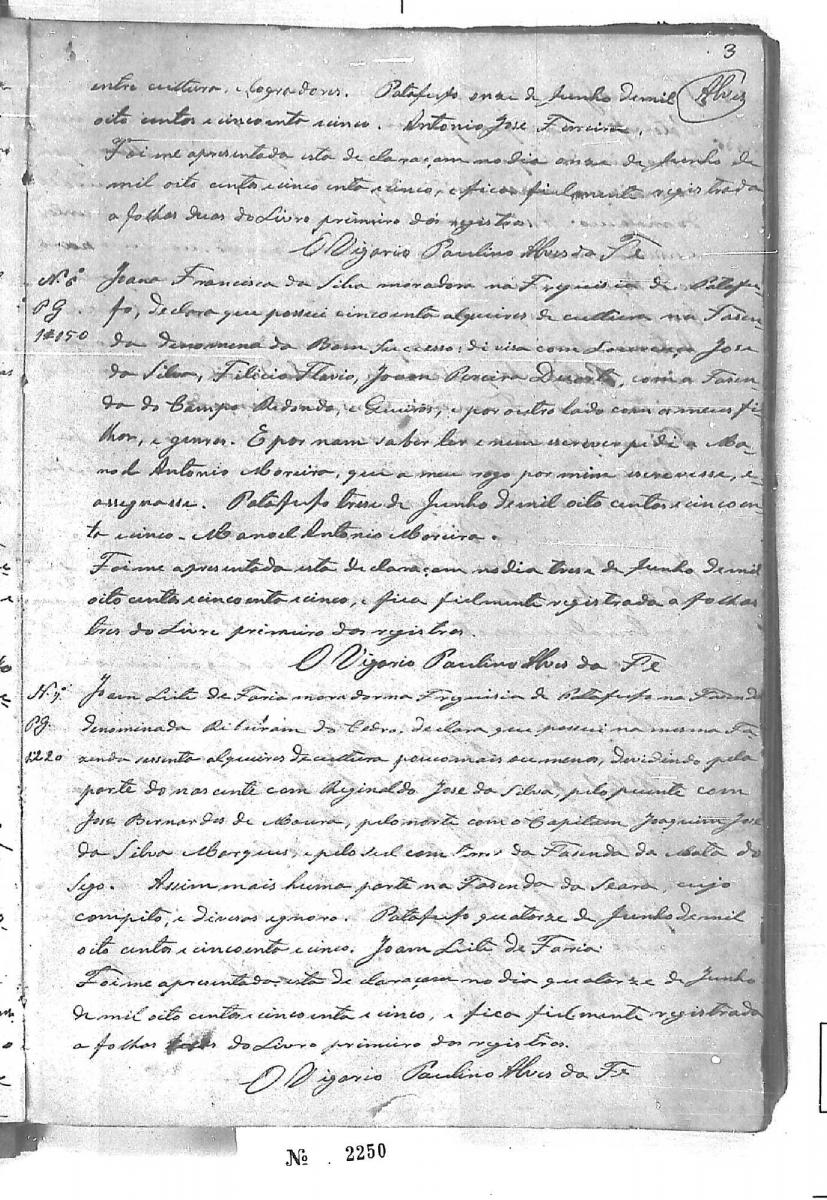 3
Alves
entre cultura, e Logradores. Patafufo onze de Junho de mil
oito centos e cincoenta e cinco. Antonio José Ferreira.
Foi me apresentada esta declaraçam no dia onze de Junho de
mil oito centos e cincoenta e cinco, e fica fielmente registrada
a folhas duas do Livro primeiro dos registros.
O Vigario Paulino Alves da Fé
N. 6º
PG
1#150
Joana Francisca da Silva moradora na Freguisia de Patafu-
fo, declara que possui cincoenta alqueires de cultura na Fasen-
da denomenada Bom Successo; divisa com Lourenço José
da Silva, Filicio Flavio, Joam Pereira Duarte, com a Fasen-
da do Campo Redondo, e Queiros, e por outro lado com os meus fi-
lhos, e genros. E por nam saber ler e nem escrever pedi a Ma-
noel Antonio Moreira, que a meu rogo por mim escrevesse, e
assignasse. Patafufo trese de Junho de mil oito centos e cincoen-
ta e cinco. Manoel Antonio Moreira.
Foi me apresentada esta declaraçam no dia trese de Junho de mil
oito centos e cincoenta e cinco, e fica fielmente registrada a folhas
tres do Livro primeiro dos registros.
O Vigario Paulino Alves da Fé
N. 7º
PG
1220
Joam Leite de Faria morador na Freguisia de Patafufo na Fasenda
denominada Ribeiram do Cedro, declara que possui na mesma Fa-
zenda sessenta alqueires de cultura pouco mais ou menos, devidindo pela
parte do nascente com Reginaldo José da Silva, pelo puente com
José Bernardes de Moura, pelo norte com o Capitam Joaquim José
da Silva Marques, e pelo sul com terras da Fasenda da Mata do
Sego. Assim mais huma parte na Fasenda da Seara, cujo
compito, e divisas ignoro. Patafufo quatorze de Junho de mil
oito centos e cincoenta e cinco. Joam Leite de Faria.
Foi me apresentada esta declaraçam no dia quatorze de Junho
de mil oito centos e cincoenta e cinco, e fica fielmente registrada
a folhas tres do Livro primeiro dos registros.
O Vigario Paulino Alves da Fé
Nº 2250